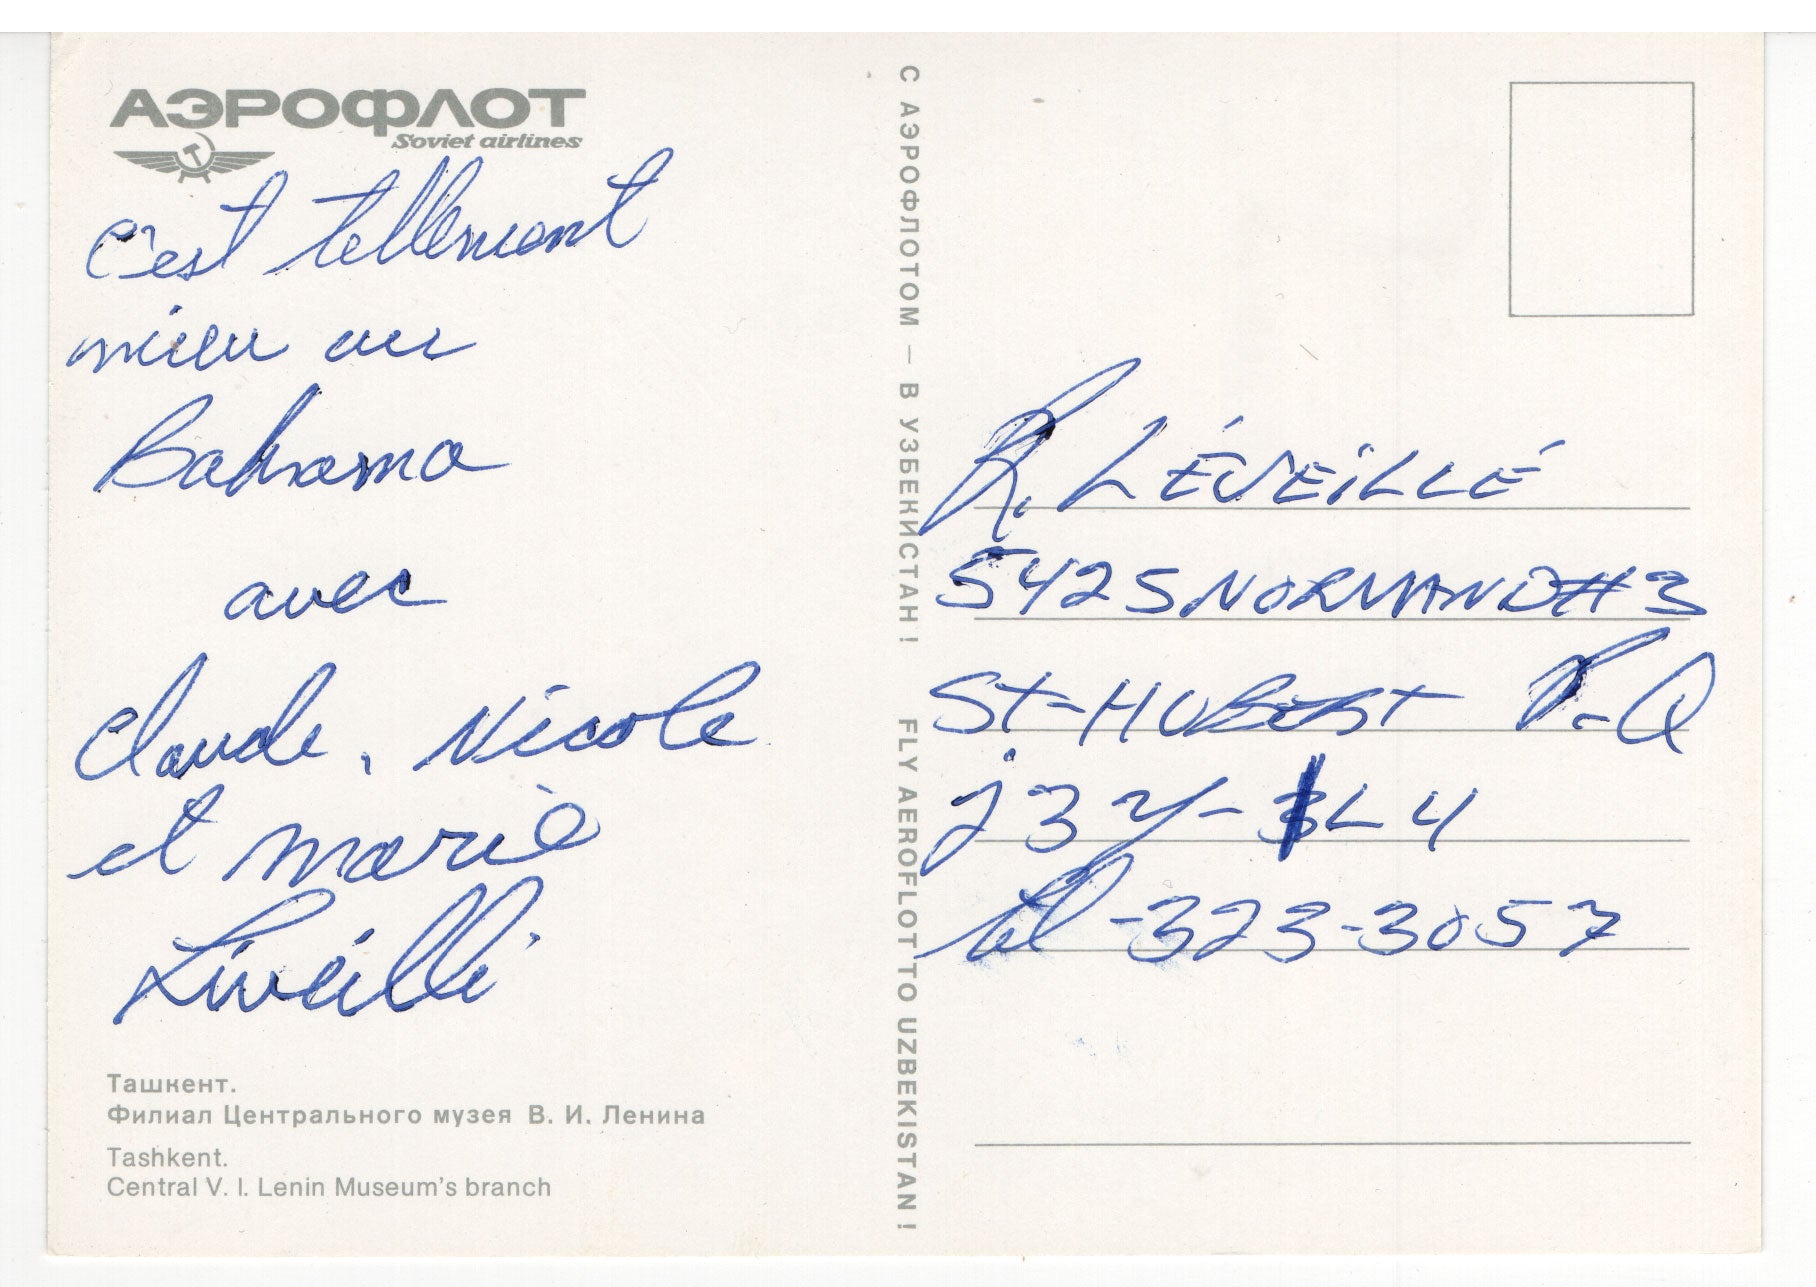 АЭРОФЛОТ
Soviet airlines
C'est tellement
mieu au
Bahama
avec
Claude, Nicole
et Marie
Léveillé
Ташкент.
Филиал Центрального музея В. И. Ленина
Tashkent.
Central V. I. Lenin Museum's branch
С АЭРОФЛОТОМ — В УЗБЕКИСТАН! FLY AEROFLOT TO UZBEKISTAN!
R. LÉVEiLLÉ
5425 NORMAND #3
St-HUBERT P.Q
J3Y- L4
tel-323-3057